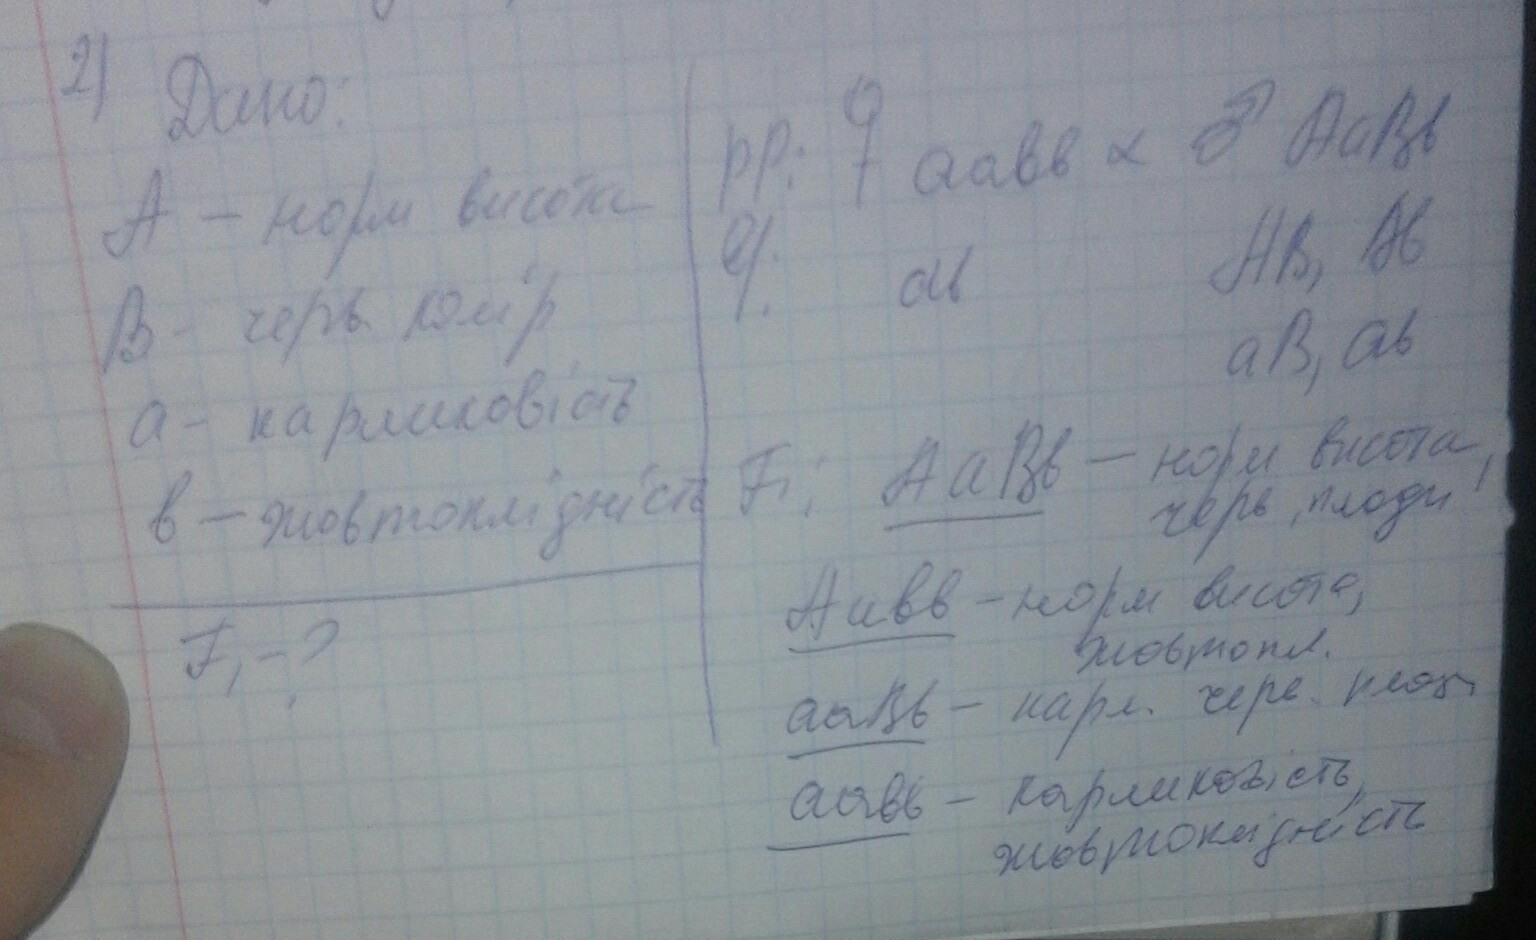 2)
Дано:
А – норм висота
В – черв. колір
а – карликовість
в – жовтоплідність
F₁ – ?
РР: ♀ аавв × ♂ АаВв
g: ав АВ, Ав
аВ, ав
F₁: АаВв – норм висота,
черв, плоди
Аавв – норм висота,
жовтопл.
ааВв – карл. черв. плоди
аавв – карликовість,
жовтоплідність